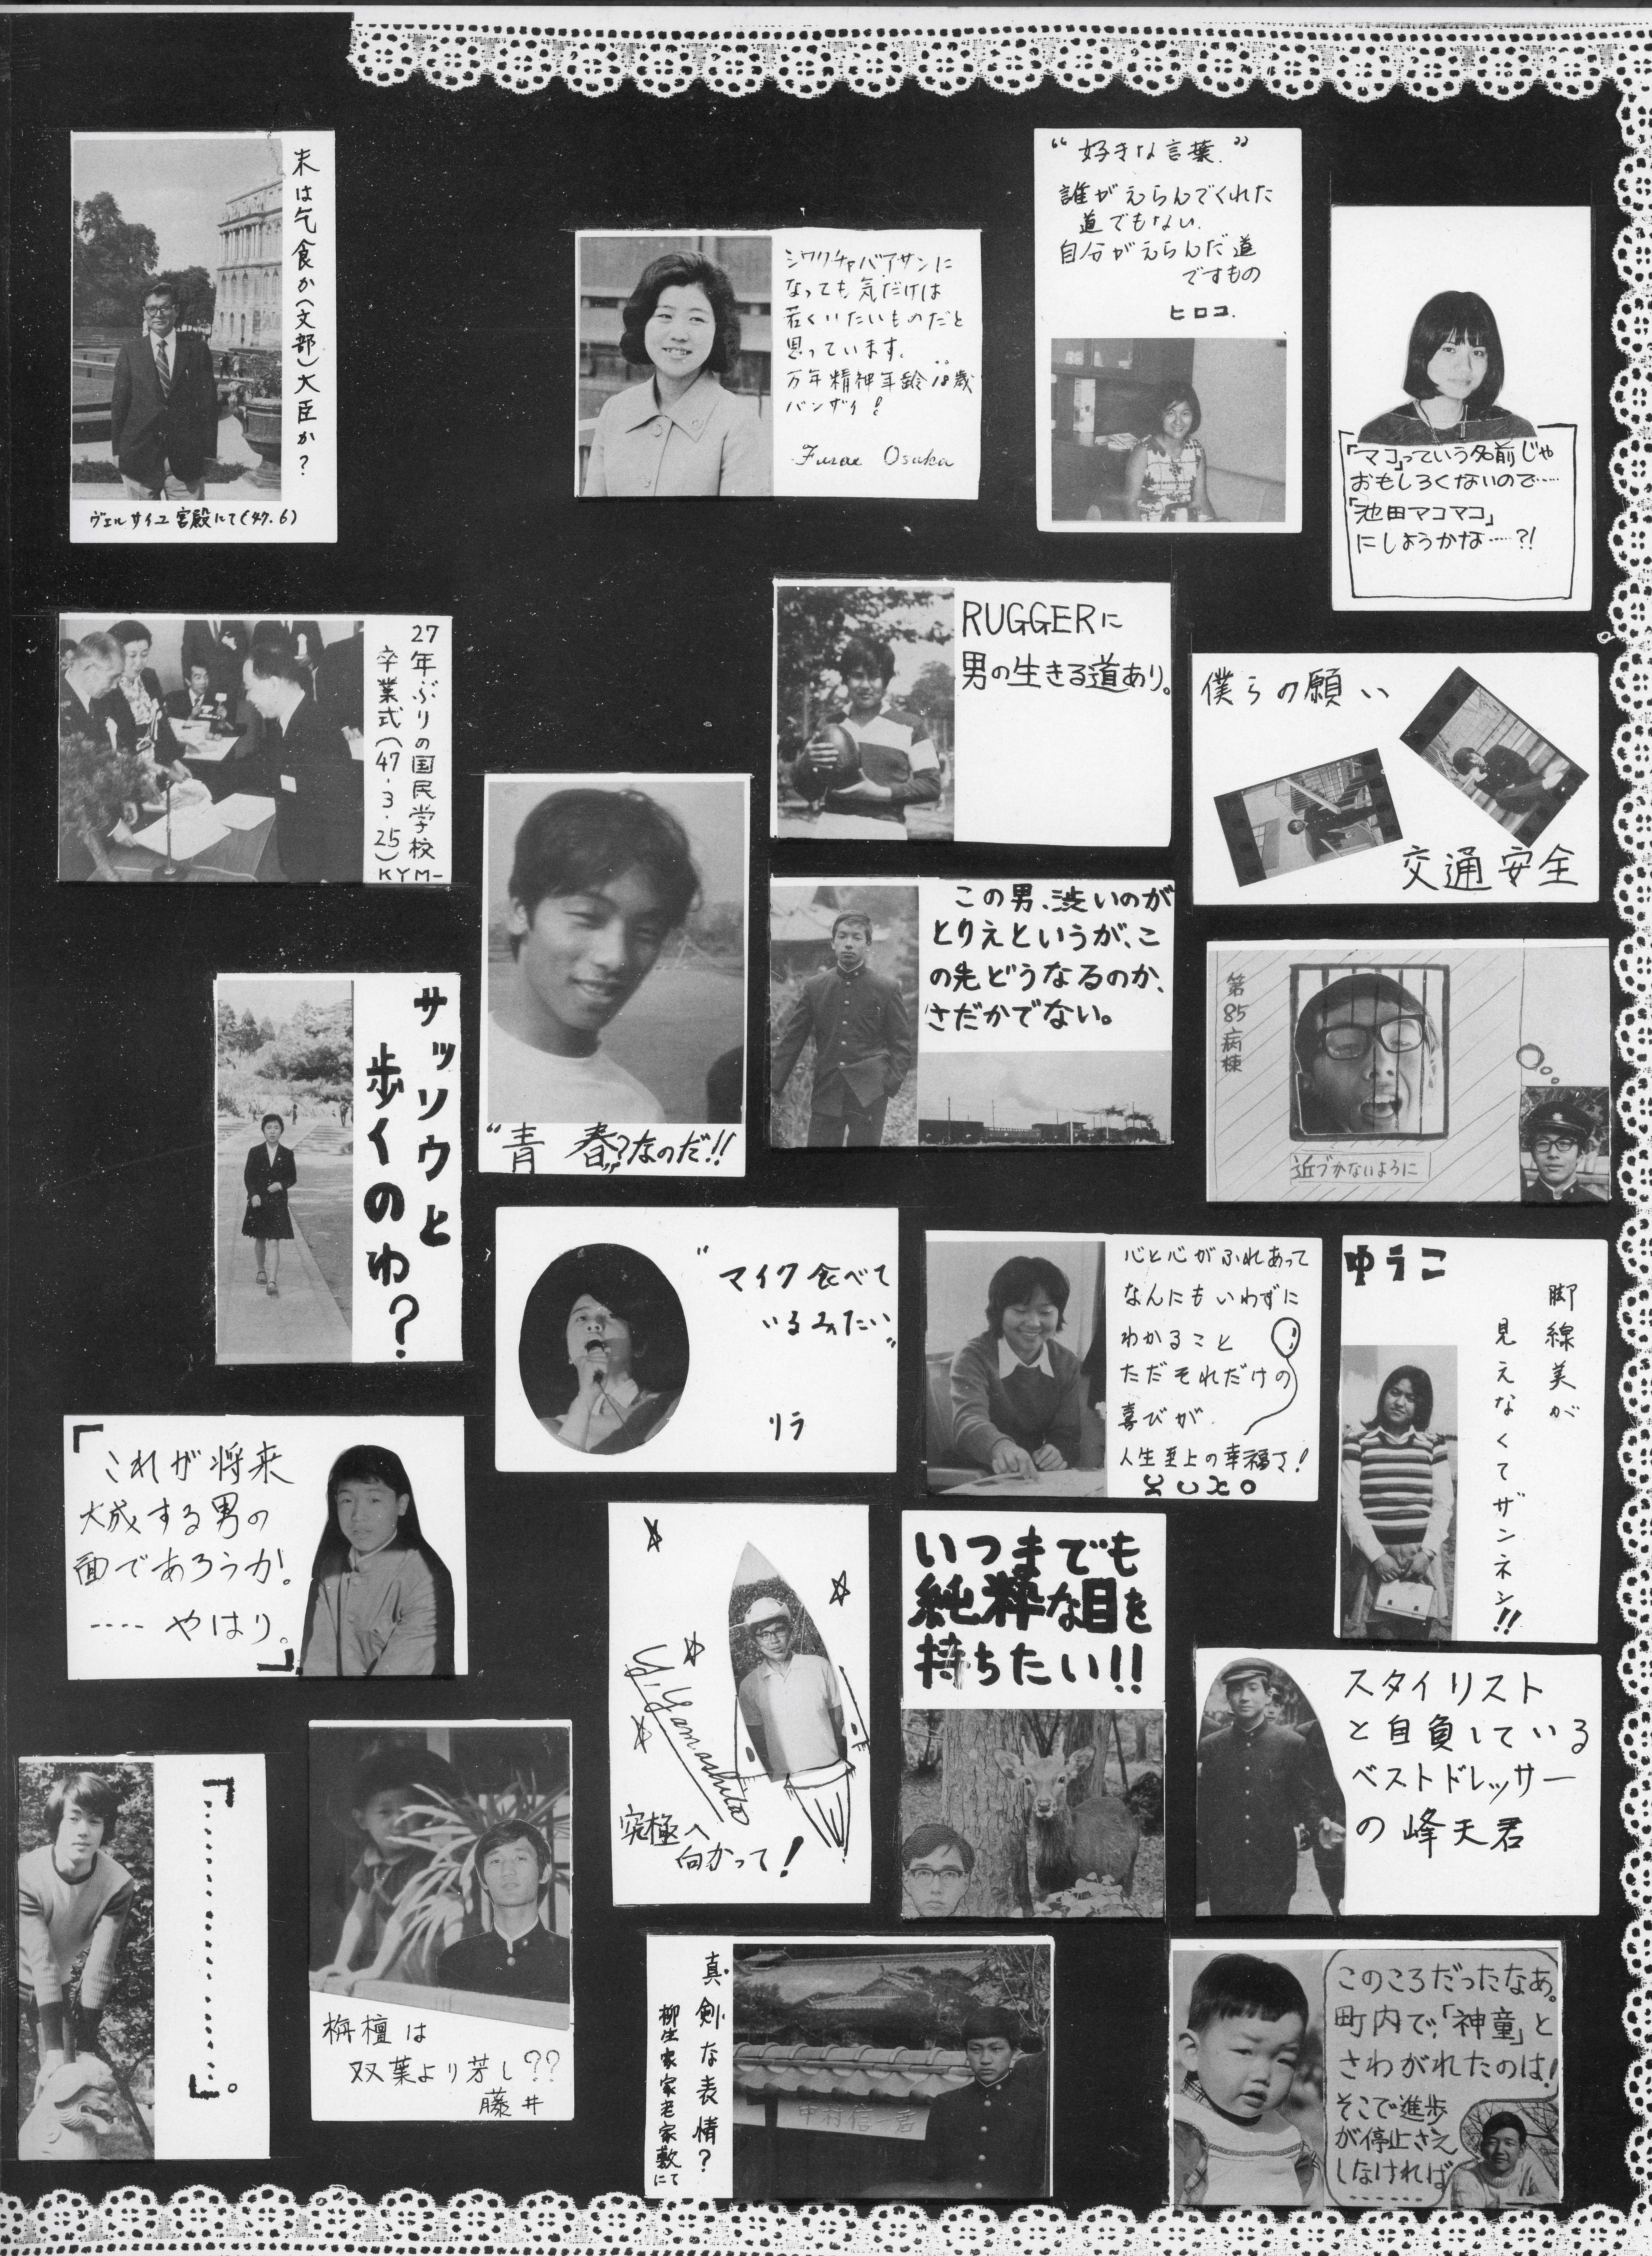 末は乞食か(文部)大臣か?
ヴェルサイユ宮殿にて(47.6)
シワクチャバアサンに
なっても気だけは
若くいたいものだと
思っています。
万年精神年齢18歳
バンザイ!
Fusae Osuka
"好きな言葉"
誰がえらんでくれた
道でもない.
自分がえらんだ道
ですもの
ヒロコ.
「マコ」っていう名前じゃ
おもしろくないので……
「池田マコマコ」
にしようかな……?!
27年ぶりの国民学校
卒業式(47.3.25)
KYM-
RUGGERに
男の生きる道あり。
僕らの願い
交通安全
"青春"?なのだ!!
この男、渋いのが
とりえというが、こ
の先どうなるのか、
さだかでない。
第85病棟
近づかないように
サッソウと
歩イのゆ?
"マイク食べて
いるみたい"
リラ
心と心がふれあって
なんにもいわずに
わかること
ただそれだけの
喜びが
人生至上の幸福さ!
YUKO
ゆうこ
脚線美が
見えなくてザンネン!!
「これが将来
大成する男の
面であろうか!
----やはり。」
Y.Yamashita
究極へ
向かって!
いつまでも
純粋な目を
持ちたい!!
スタイリスト
と自負している
ベストドレッサー
の峰天君
「…………」。
栴檀は
双葉より芳し??
藤井
真剣な表情?
柳生家家老家敷にて
中村信一君
このころだったなあ。
町内で、「神童」と
さわがれたのは!
そこで進歩
が停止さえ
しなければ
-------